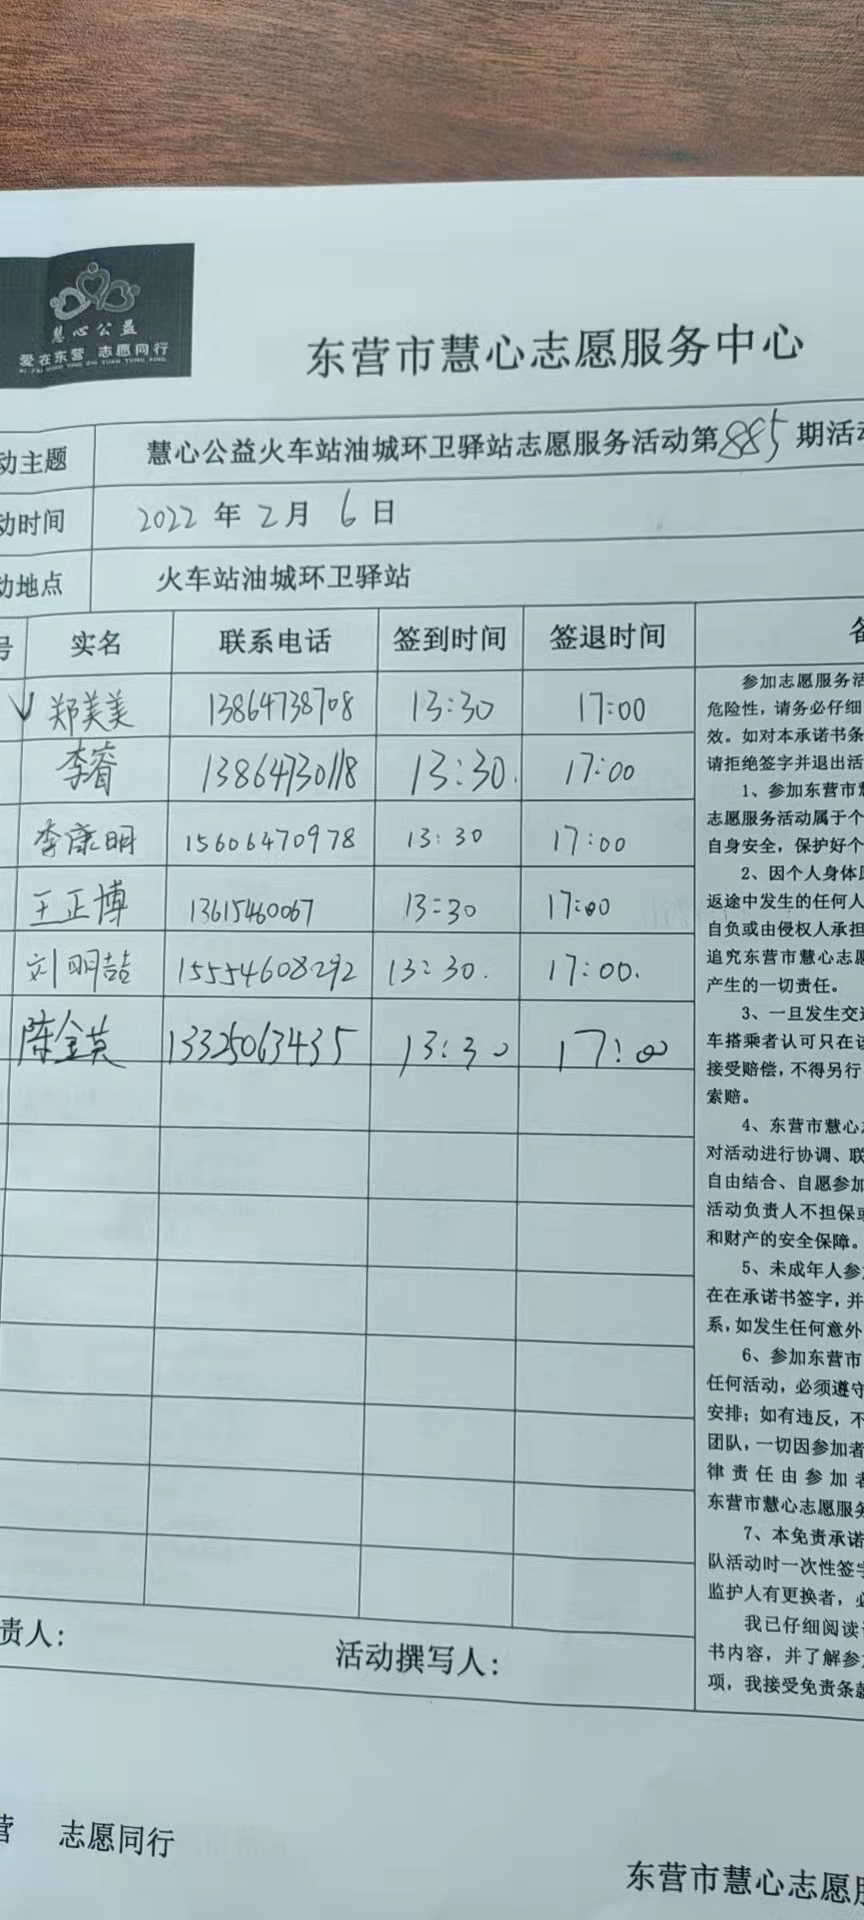 慧心公益
爱在东营 志愿同行
东营市慧心志愿服务中心
动主题 慧心公益火车站油城环卫驿站志愿服务活动第885期活动
动时间 2022年2月6日
动地点 火车站油城环卫驿站
号 实名 联系电话 签到时间 签退时间 备
郑美美 13864738708 13:30 17:00
李睿 13864730118 13:30. 17:00
李康明 15606470978 13:30 17:00
王正博 13615460067 13:30 17:00
刘明喆 15554608292 13:30. 17:00.
陈金英 13325063435 13:30 17:00
参加志愿服务活
危险性，请务必仔细
效。如对本承诺书条
请拒绝签字并退出活
1、参加东营市慧
志愿服务活动属于个
自身安全，保护好个
2、因个人身体原
返途中发生的任何人
自负或由侵权人承担
追究东营市慧心志愿
产生的一切责任。
3、一旦发生交通
车搭乘者认可只在该
接受赔偿，不得另行
索赔。
4、东营市慧心志
对活动进行协调、联
自由结合、自愿参加
活动负责人不担保或
和财产的安全保障。
5、未成年人参加
在在承诺书签字，并
系，如发生任何意外
6、参加东营市
任何活动，必须遵守
安排；如有违反，不
团队，一切因参加者
律责任由参加者
东营市慧心志愿服务
7、本免责承诺
队活动时一次性签字
监护人有更换者，必
我已仔细阅读
书内容，并了解参加
项，我接受免责条款
责人： 活动撰写人：
营 志愿同行
东营市慧心志愿服